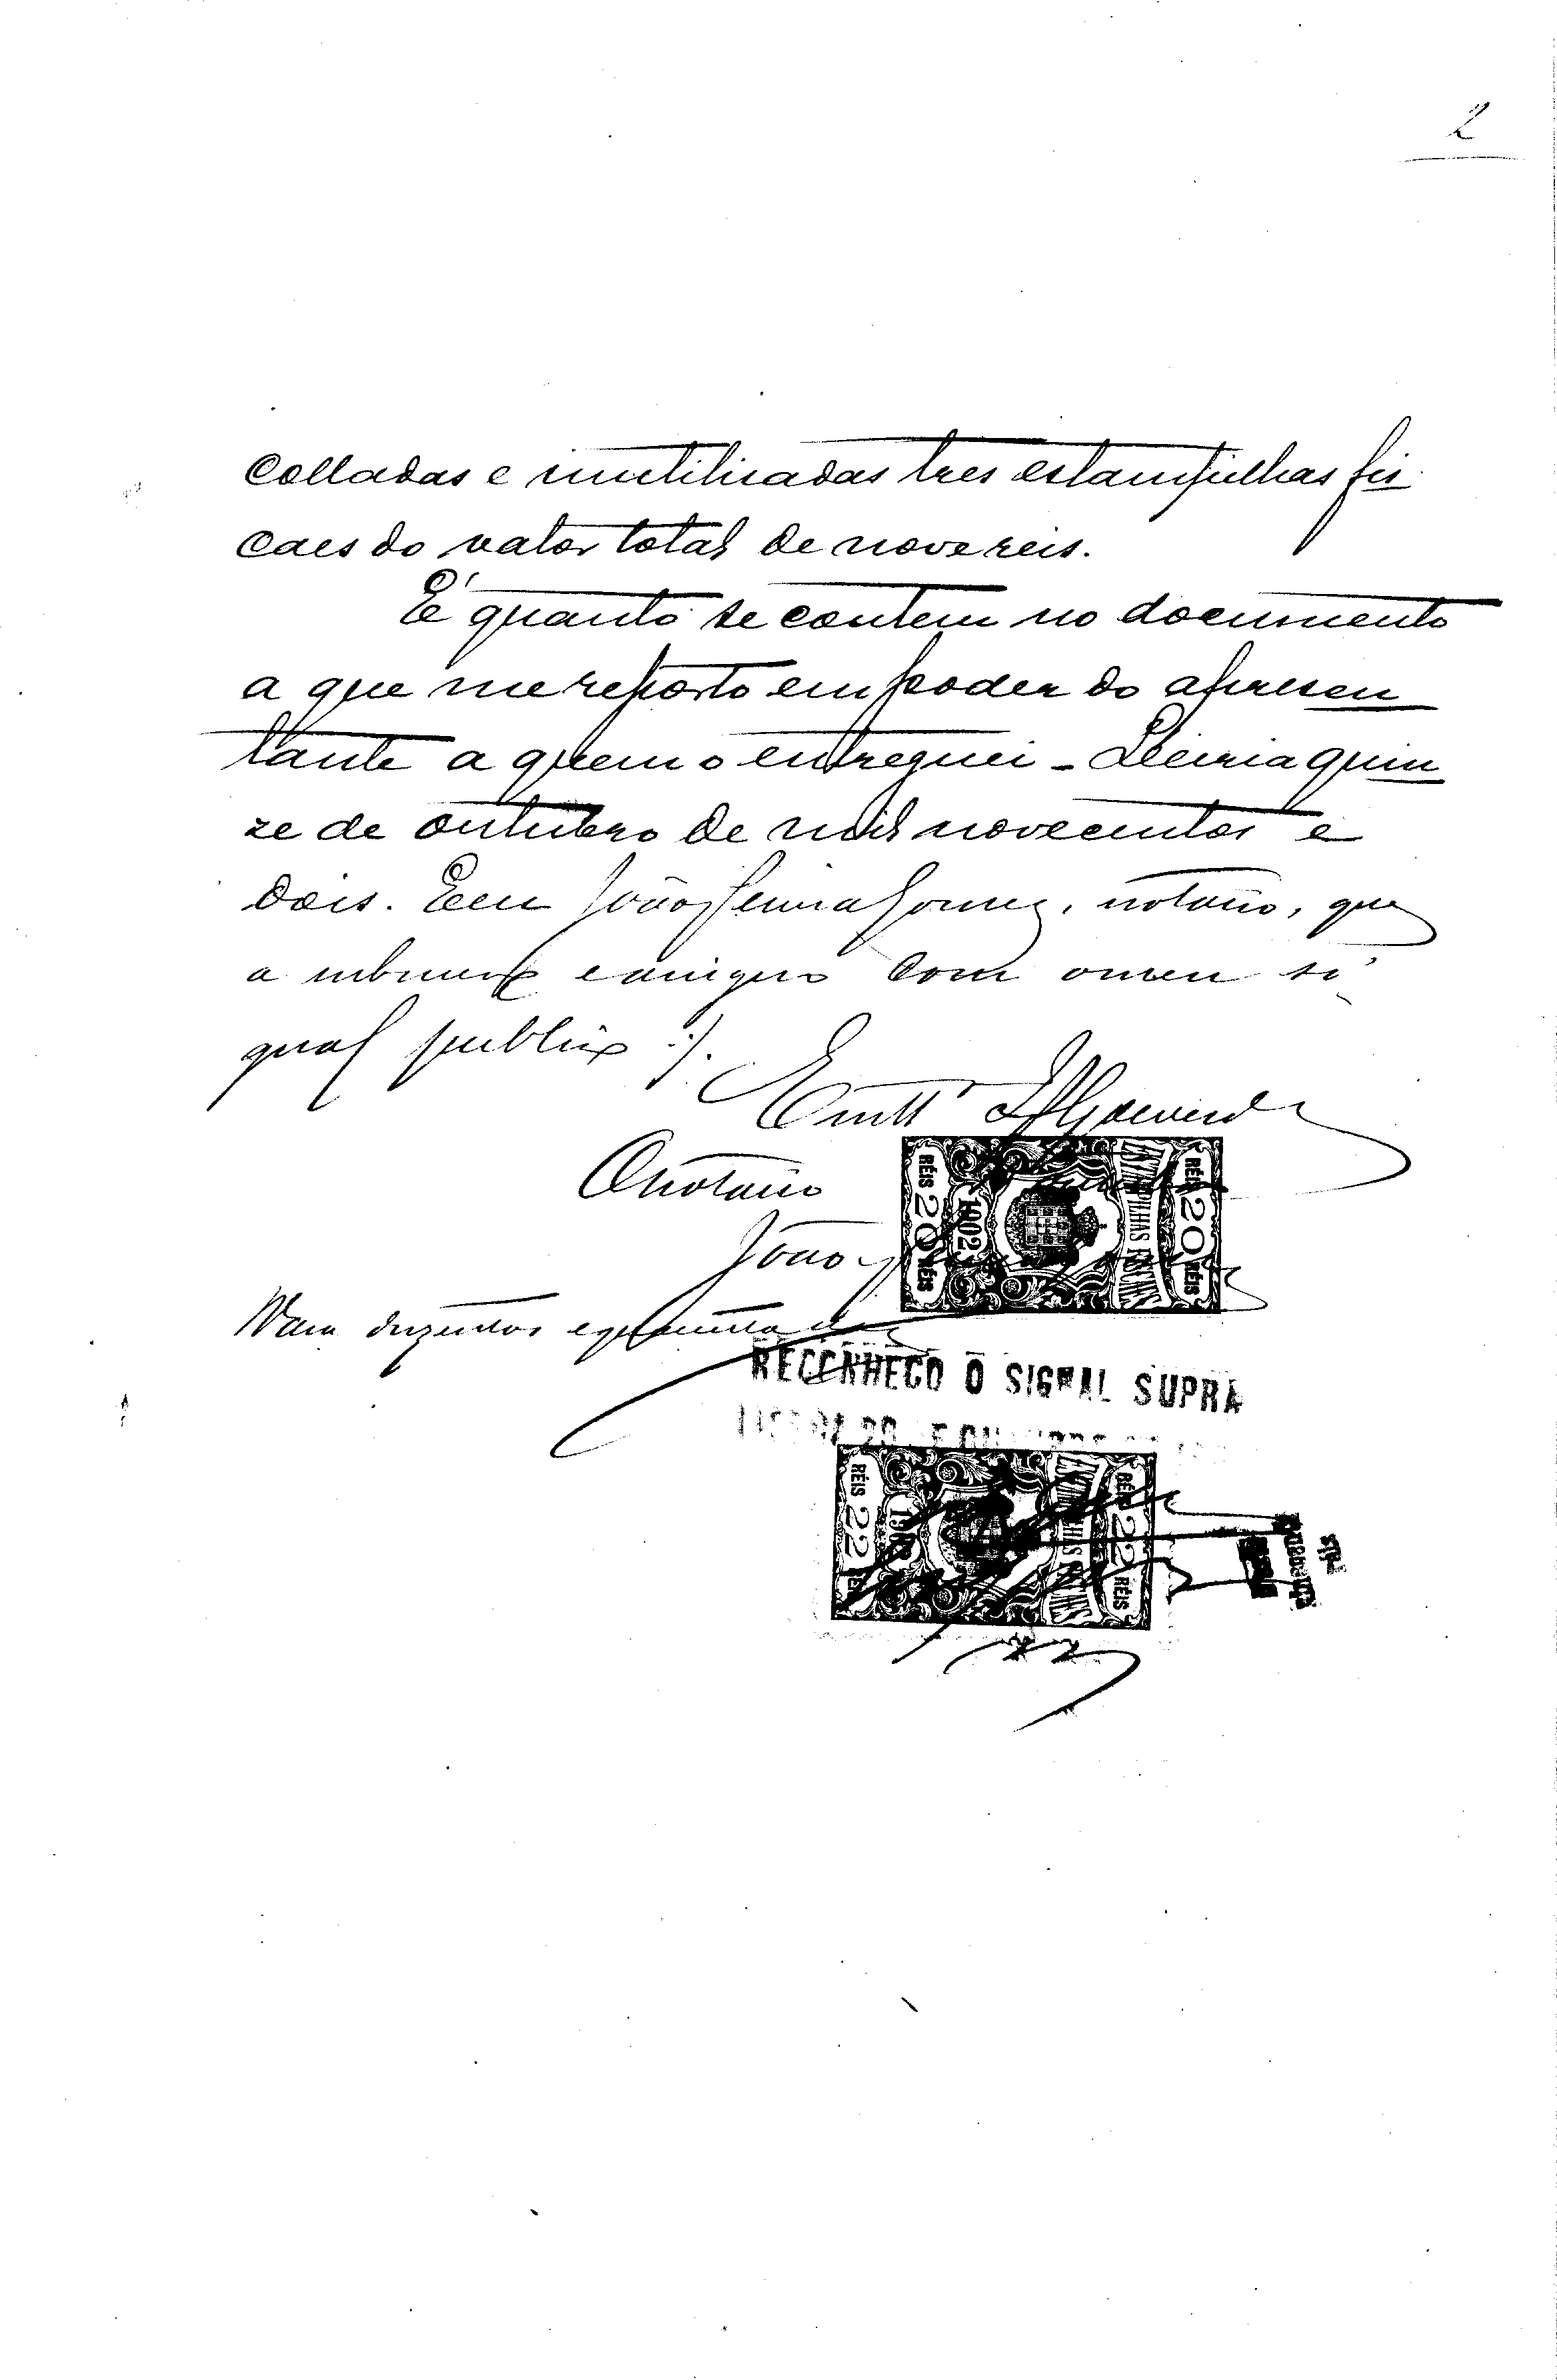 2
colladas e inutilisadas tres estampilhas fis
caes do valor total de nove reis.
E' quanto se contem no documento
a que me reporto em poder do apresen
tante a quem o entreguei - Leiria quin
ze de outubro de mil novecentos e
dois. E eu João Pereira Gomes, notario, que
a subscrevo e assigno com o meu si
gnal publico :/.
Em tt.º de
O notario
João
RÉIS 20 RÉIS
1902
ESTAMPILHAS FISCAES
RÉIS 20 RÉIS
Vale duzentos e
RECONHEÇO O SIGNAL SUPRA
RÉIS 22 RÉIS
1902
ESTAMPILHAS FISCAES
RÉIS 22 RÉIS